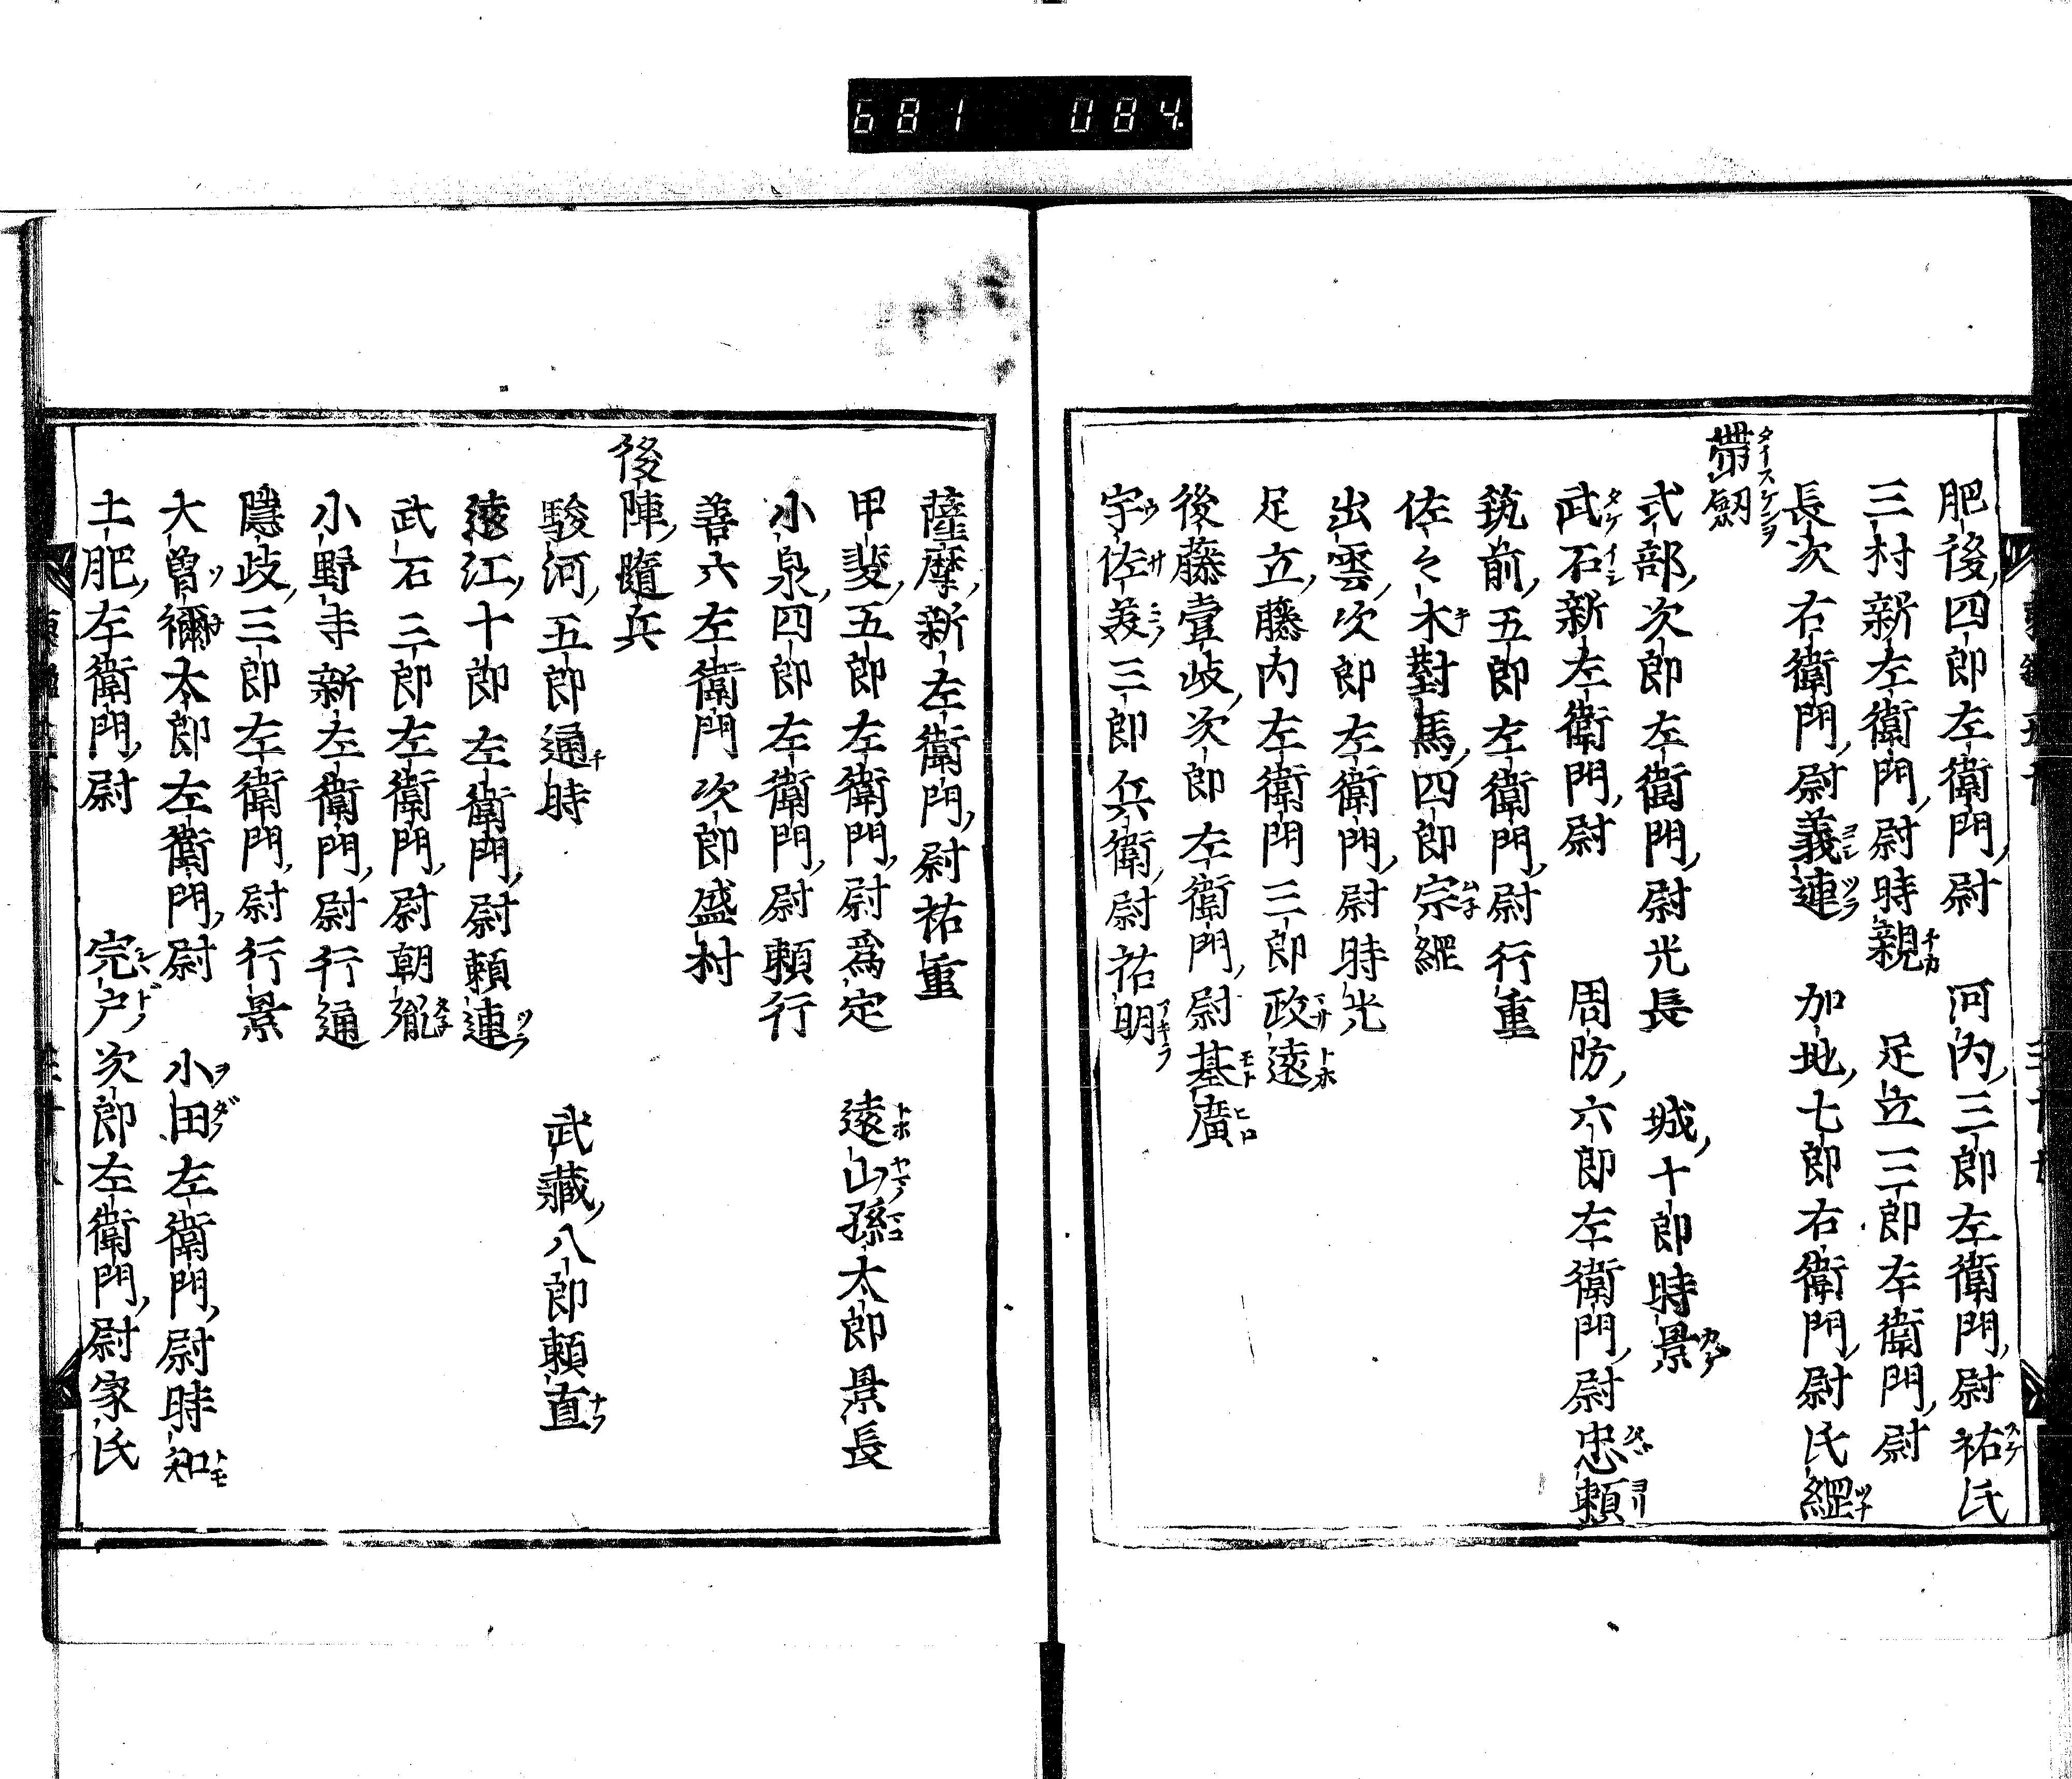 681 084
肥後四郎左衛門尉 河内三郎左衛門尉祐氏
三村新左衛門尉時親 足立三郎左衛門尉
長次右衛門尉義連 加地七郎右衛門尉氏經
帶劔
式部次郎左衛門尉光長 城十郎時景
武石新左衛門尉 周防六郎左衛門尉忠頼
筑前五郎左衛門尉行重
佐々木對馬四郎宗綱
出雲次郎左衛門尉時光
足立藤内左衛門三郎政遠
後藤壹岐次郎左衛門尉基廣
宇佐美三郎兵衛尉祐明
薩摩新左衛門尉祐重
甲斐五郎左衛門尉爲定 遠山孫太郎景長
小泉四郎左衛門尉頼行
善六左衛門次郎盛村
後陣隨兵
駿河五郎通時 武藏八郎頼直
遠江十郎左衛門尉頼連
武石三郎左衛門尉朝胤
小野寺新左衛門尉行通
隱岐三郎左衛門尉行景
大曽禰太郎左衛門尉 小田左衛門尉時知
土肥左衛門尉 完戸次郎左衛門尉家氏